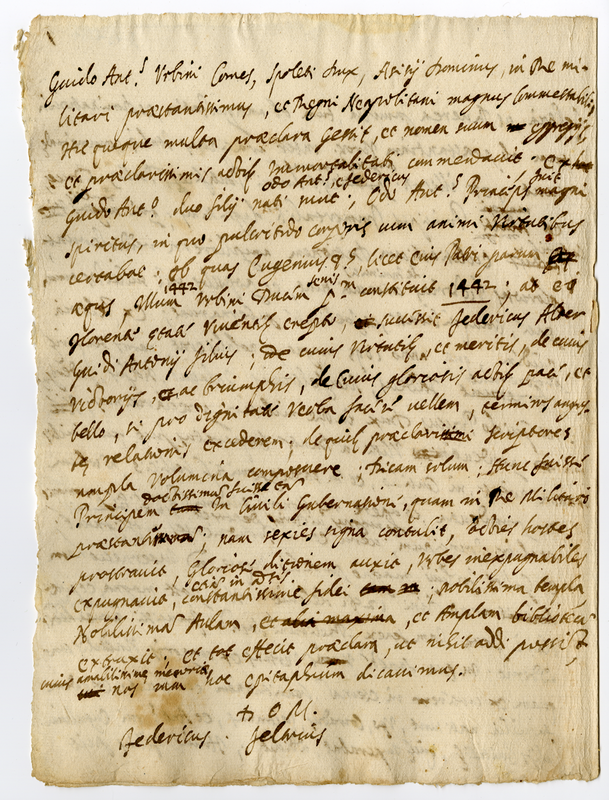 Guido Ant.s Urbini Comes, Spoleti Dux, Asisij Dominus, in Re mi-
litari præstantissimus, et Regni Neapolitani magnus Commestabilis,
Hic quoque multa præclara gessit, et nomen suum egregijs,
et præclarissimis actis immortalitati commendavit, Ex
odo Ant.s, Federicus fuit
Guido Ant.o duo filij nati sunt; Odo Ant.s Princeps magni
spiritus, in quo pulcritudo corporis cum animi Virtutibus
certabat; ob quas Eugenius 4.s, licet eius Patri parum
1442
æqus, illum Urbini Ducem constituit 1442; at ei
florenti ætati viventis erepto, successit Federicus Alter
Guidi Antonij filius; de cuius Virtutis, et meritis, de cuius
Victorijs, ac triumphis, de cuius gloriosis actis paci, et
bello, si pro dignitate Verba facere vellem, terminos angus-
tæ relationis excederem; de quis præclarissimi scriptores
ampla Volumina composuere; dicam solum; Hunc fuisse
Doctissimum
Principem in Civili Gubernationi, quam in Re Militari
præstantis; nam sexies signa contulit, octies hostes
prostravit, Gloriose ditionem auxit, Urbes inexpugnabiles
expugnavit, constantissime fidei; nobilissima templa
Nobilissimam Aulam, et alia maxima, et Amplam bibliotecam
extruxit, et tot effecit præclara, ut nihil addi possit,
cuius amabilissime memoriæ
nos hoc epitaphium dicavimus.
D O M.
Federicus Feltrius